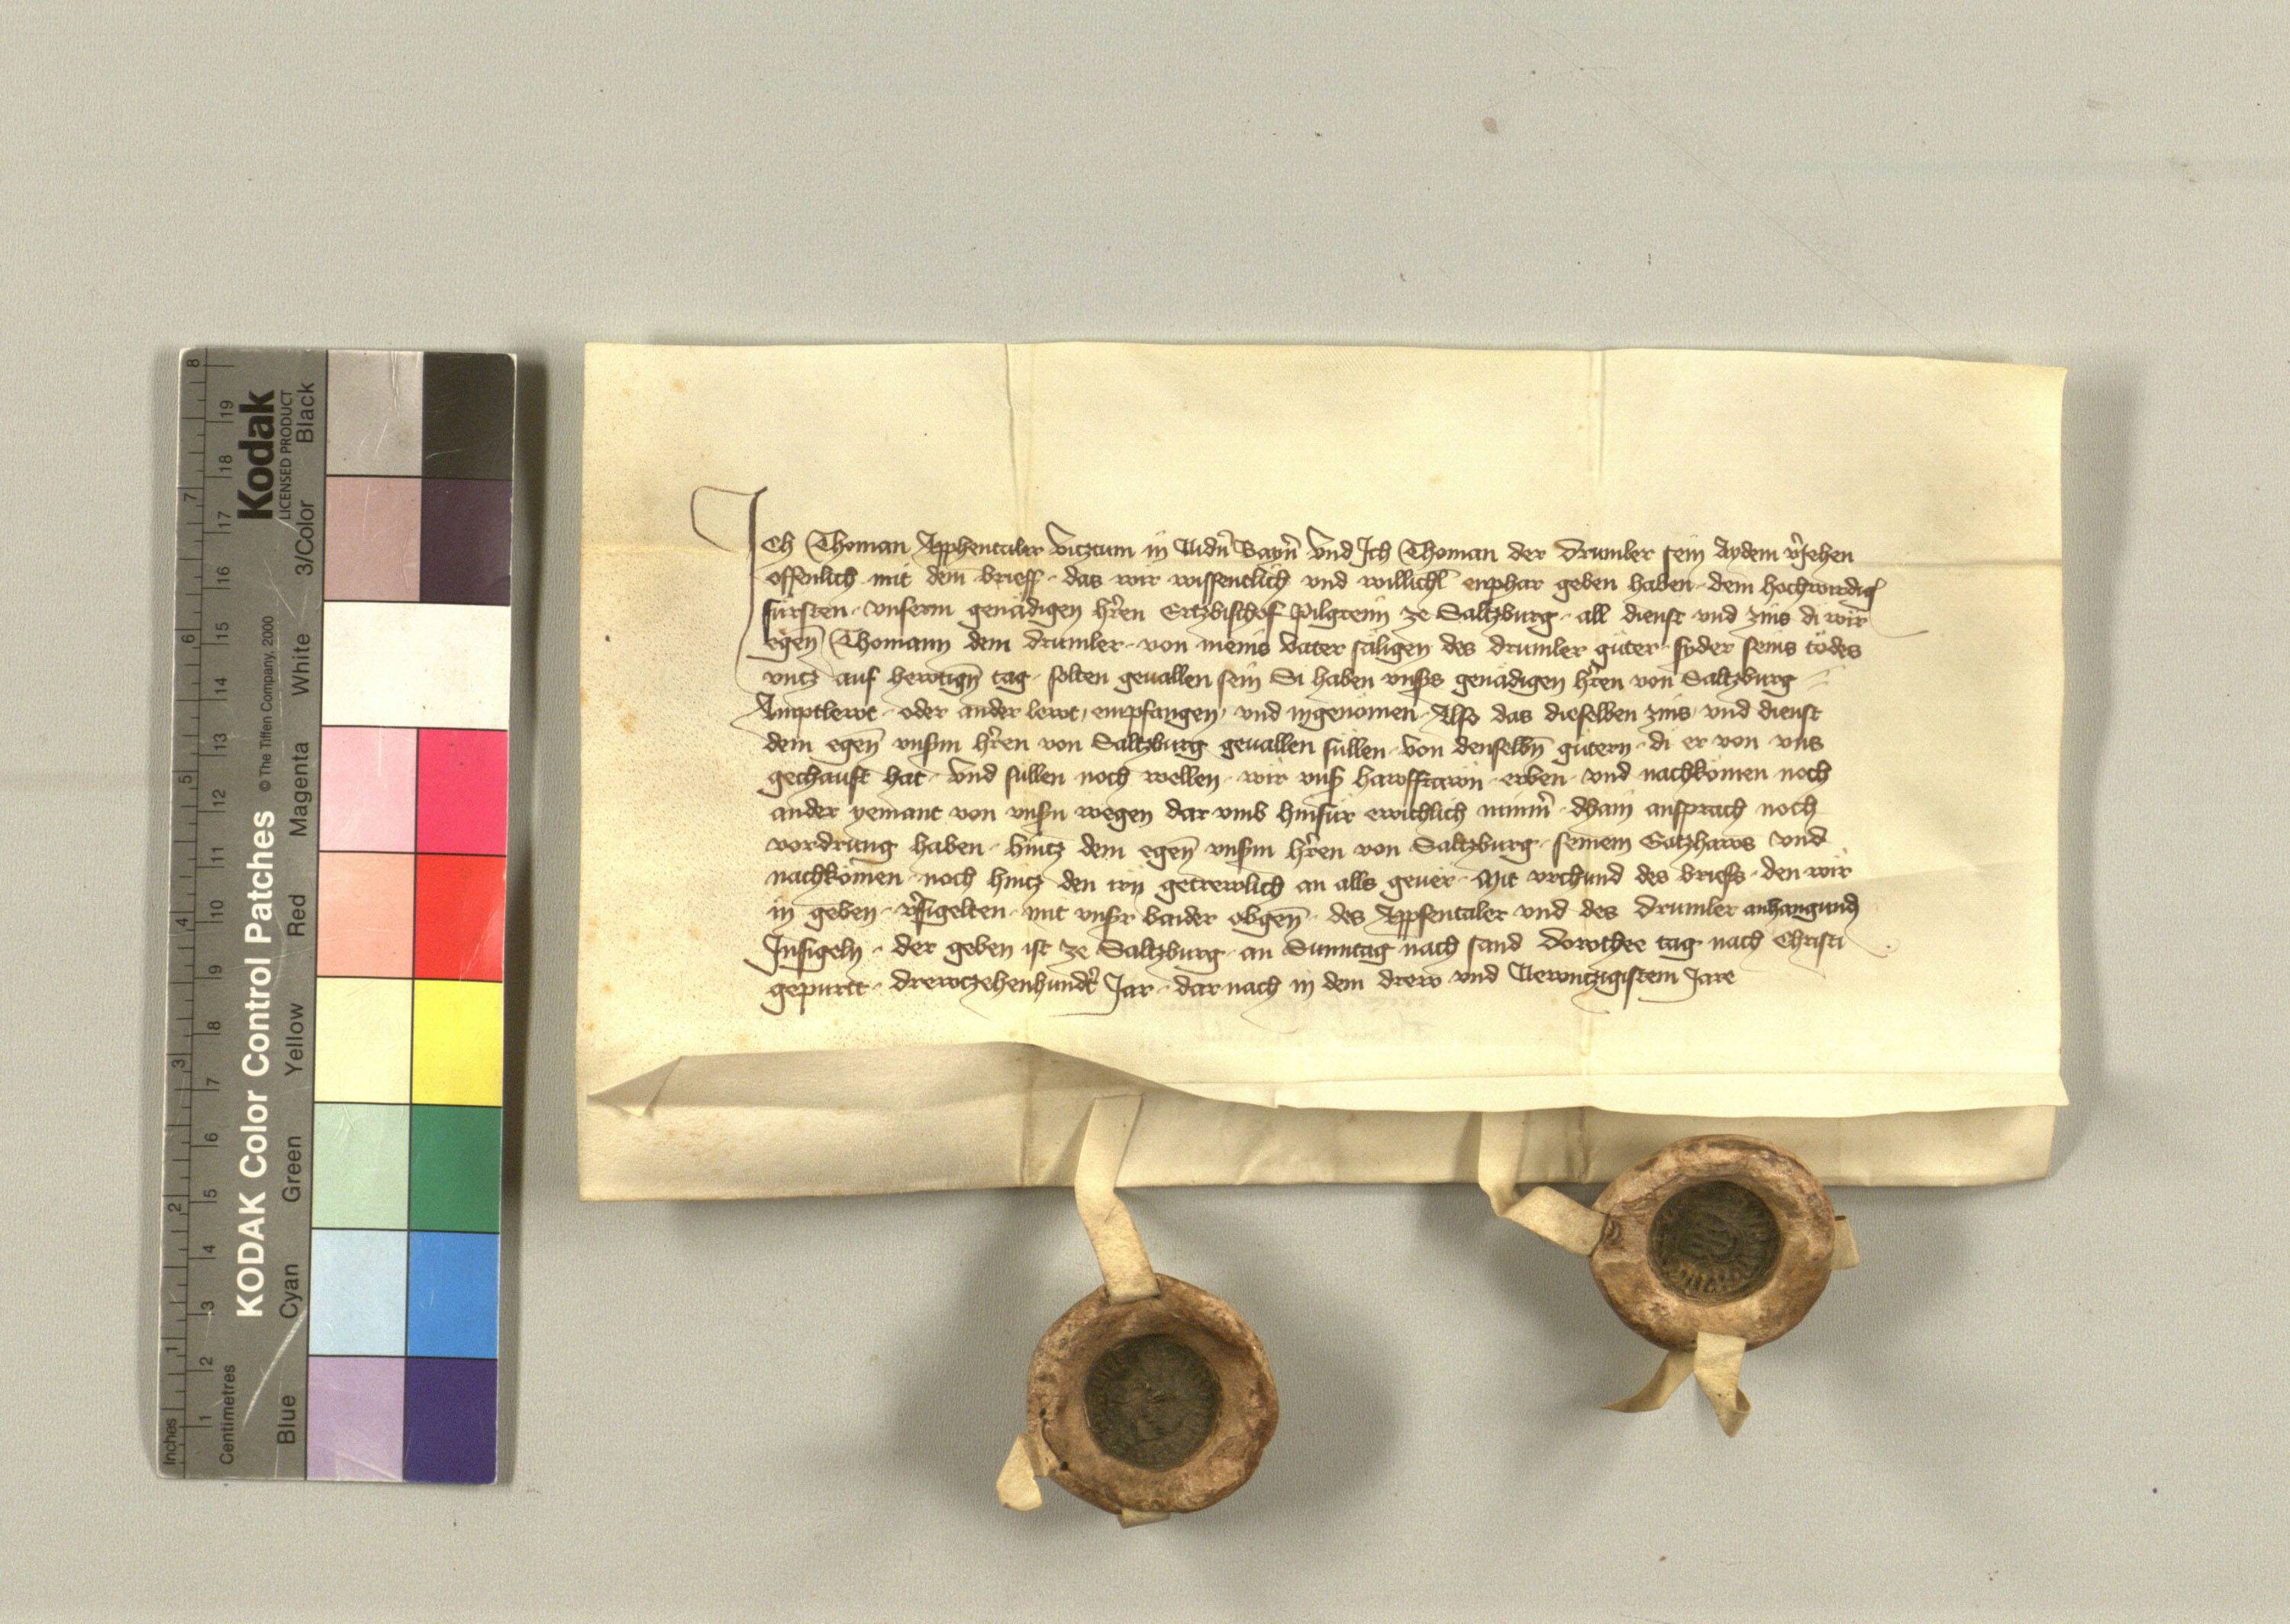 Ich Thoman Apphentaler Vitztum in Nidn̄ Bayrn̄ Vnd Ich Thoman der Drumler sein Aydem v̾Jehen
offenlich mit dem brieff · das wir wissentlich vnd willichl enphar geben haben · dem hochwirdig
fürsten · vnserm genädigen hr̄en Ertzbischof Pilgreim ze Saltzburg · all dienst vnd zins di wir
egen̄ Thomann dem drumler · von meins vater säligen des drumler güter · syder seins tödes
vntz auf hewtign̄ tag · solten geuallen sein Si haben vnsers genädigen hr̄en von Saltzburg
Amptlewt · oder ander lewt, empfangen, vnd ingenomen · Also das dieselben zins, vnd dienst
dem egen̄ vnserm hr̄en von Saltzburg geuallen süllen · von denselbn̄ gütern · di er von vns
gechauft hat · Vnd süllen noch wellen · wir vnser hawsfrawn · erben · vnd nachkömen noch
ander yemant von vnsern wegen dar vmb hinfür ewichlich nimm̄ · dhain ansprach noch
vordrung haben · hintz dem egen̄ vnserm hr̄en von Saltzburg · seinem Gotzhaws vnd
nachkömen · noch hintz den irn getrewlich an alls geuer · Mit vrchund des briefs · den wir
in geben · v̾sigelten · mit vnser baider obgen̄ · des Apfentaler vnd des drumler anhangund
Insigeln · der geben ist ze Saltzburg · an Sunntag nach sand Dorothee tag nach Christi
gepurtt · drewtzehenhundt̾ Jar · darnach in dem drew vnd Newntzigistem Jare
KODAK Color Control Patches
© The Tiffen Company, 2000
Kodak
LICENSED PRODUCT
Inches 1 2 3 4 5 6 7 8
Centimetres 1 2 3 4 5 6 7 8 9 10 11 12 13 14 15 16 17 18 19
Blue Cyan Green Yellow Red Magenta White 3/Color Black